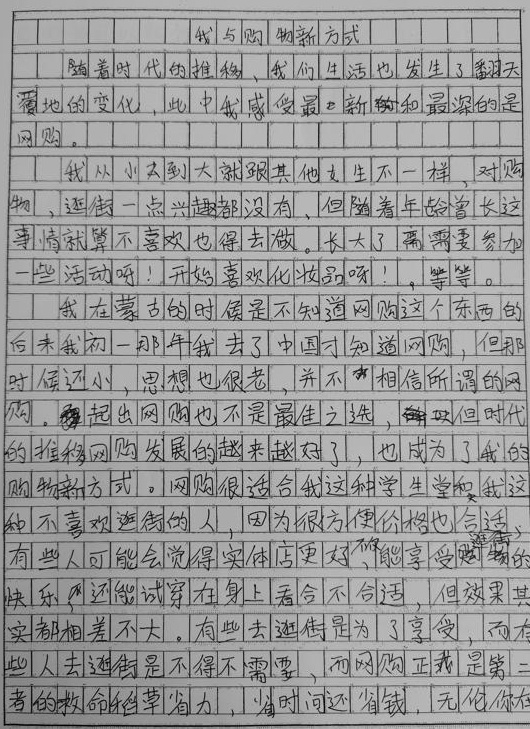 我与购物新方式
随着时代的推移，我们生活也发生了翻天
覆地的变化，此中我感受最新和最深的是
网购。
我从小去到大就跟其他女生不一样，对购
物，逛街一点兴趣都没有，但随着年龄曾长这
事情就算不喜欢也得去做。长大了需要参加
一些活动呀！开始喜欢化妆品呀！，等等。
我在蒙古的时候是不知道网购这个东西的
后来我初一那年我去了中国才知道网购，但那
时候还小，思想也很老，并不相信所谓的网
购。起出网购也不是最佳之选，但时代
的推移网购发展的越来越好了，也成为了我的
购物新方式。网购很适合我这种学生党和我这
种不喜欢逛街的人，因为很方便价格也合适，
有些人可能会觉得实体店更好，不仅能享受逛街的
快乐，还能试穿在身上看合不合适，但效果其
实都相差不大。有些去逛街是为了享受，而有
些人去逛街是不得不需要，而网购正我是第二
者的救命稻草省力，省时间还省钱，无伦你在